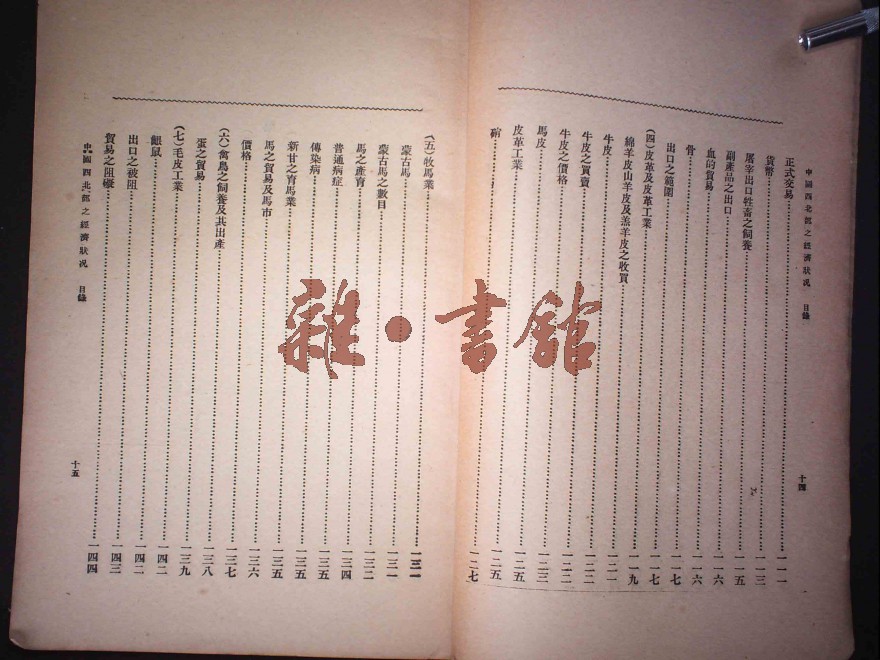 中國西北部之經濟狀況 目錄 十四
正式交易……一一一
貨幣……一一三
屠宰出口牲畜之飼養……一一五
副產品之出口……一一六
血的貿易……一一六
骨……一一七
出口之範圍……一一七
(四)皮革及皮革工業……一一九
綿羊皮山羊皮及羔羊皮之收買……一二一
牛皮……一二二
牛皮之買賣……一二二
牛皮之價格……一二三
馬皮……一二五
皮革工業……一二五
硝……一二七
(五)牧馬業……一三一
蒙古馬……一三一
蒙古馬之數目……一三二
馬之產育……一三四
普通病症……一三五
傳染病……一三五
新甘之育馬業……一三五
馬之貿易及馬市……一三六
價格……一三七
(六)禽鳥之飼養及其出產……一三八
蛋之貿易……一三九
(七)毛皮工業……一四二
鼴鼠……一四二
出口之被阻……一四三
貿易之阻礙……一四四
中國西北部之經濟狀況 目錄 十五
雜·書館